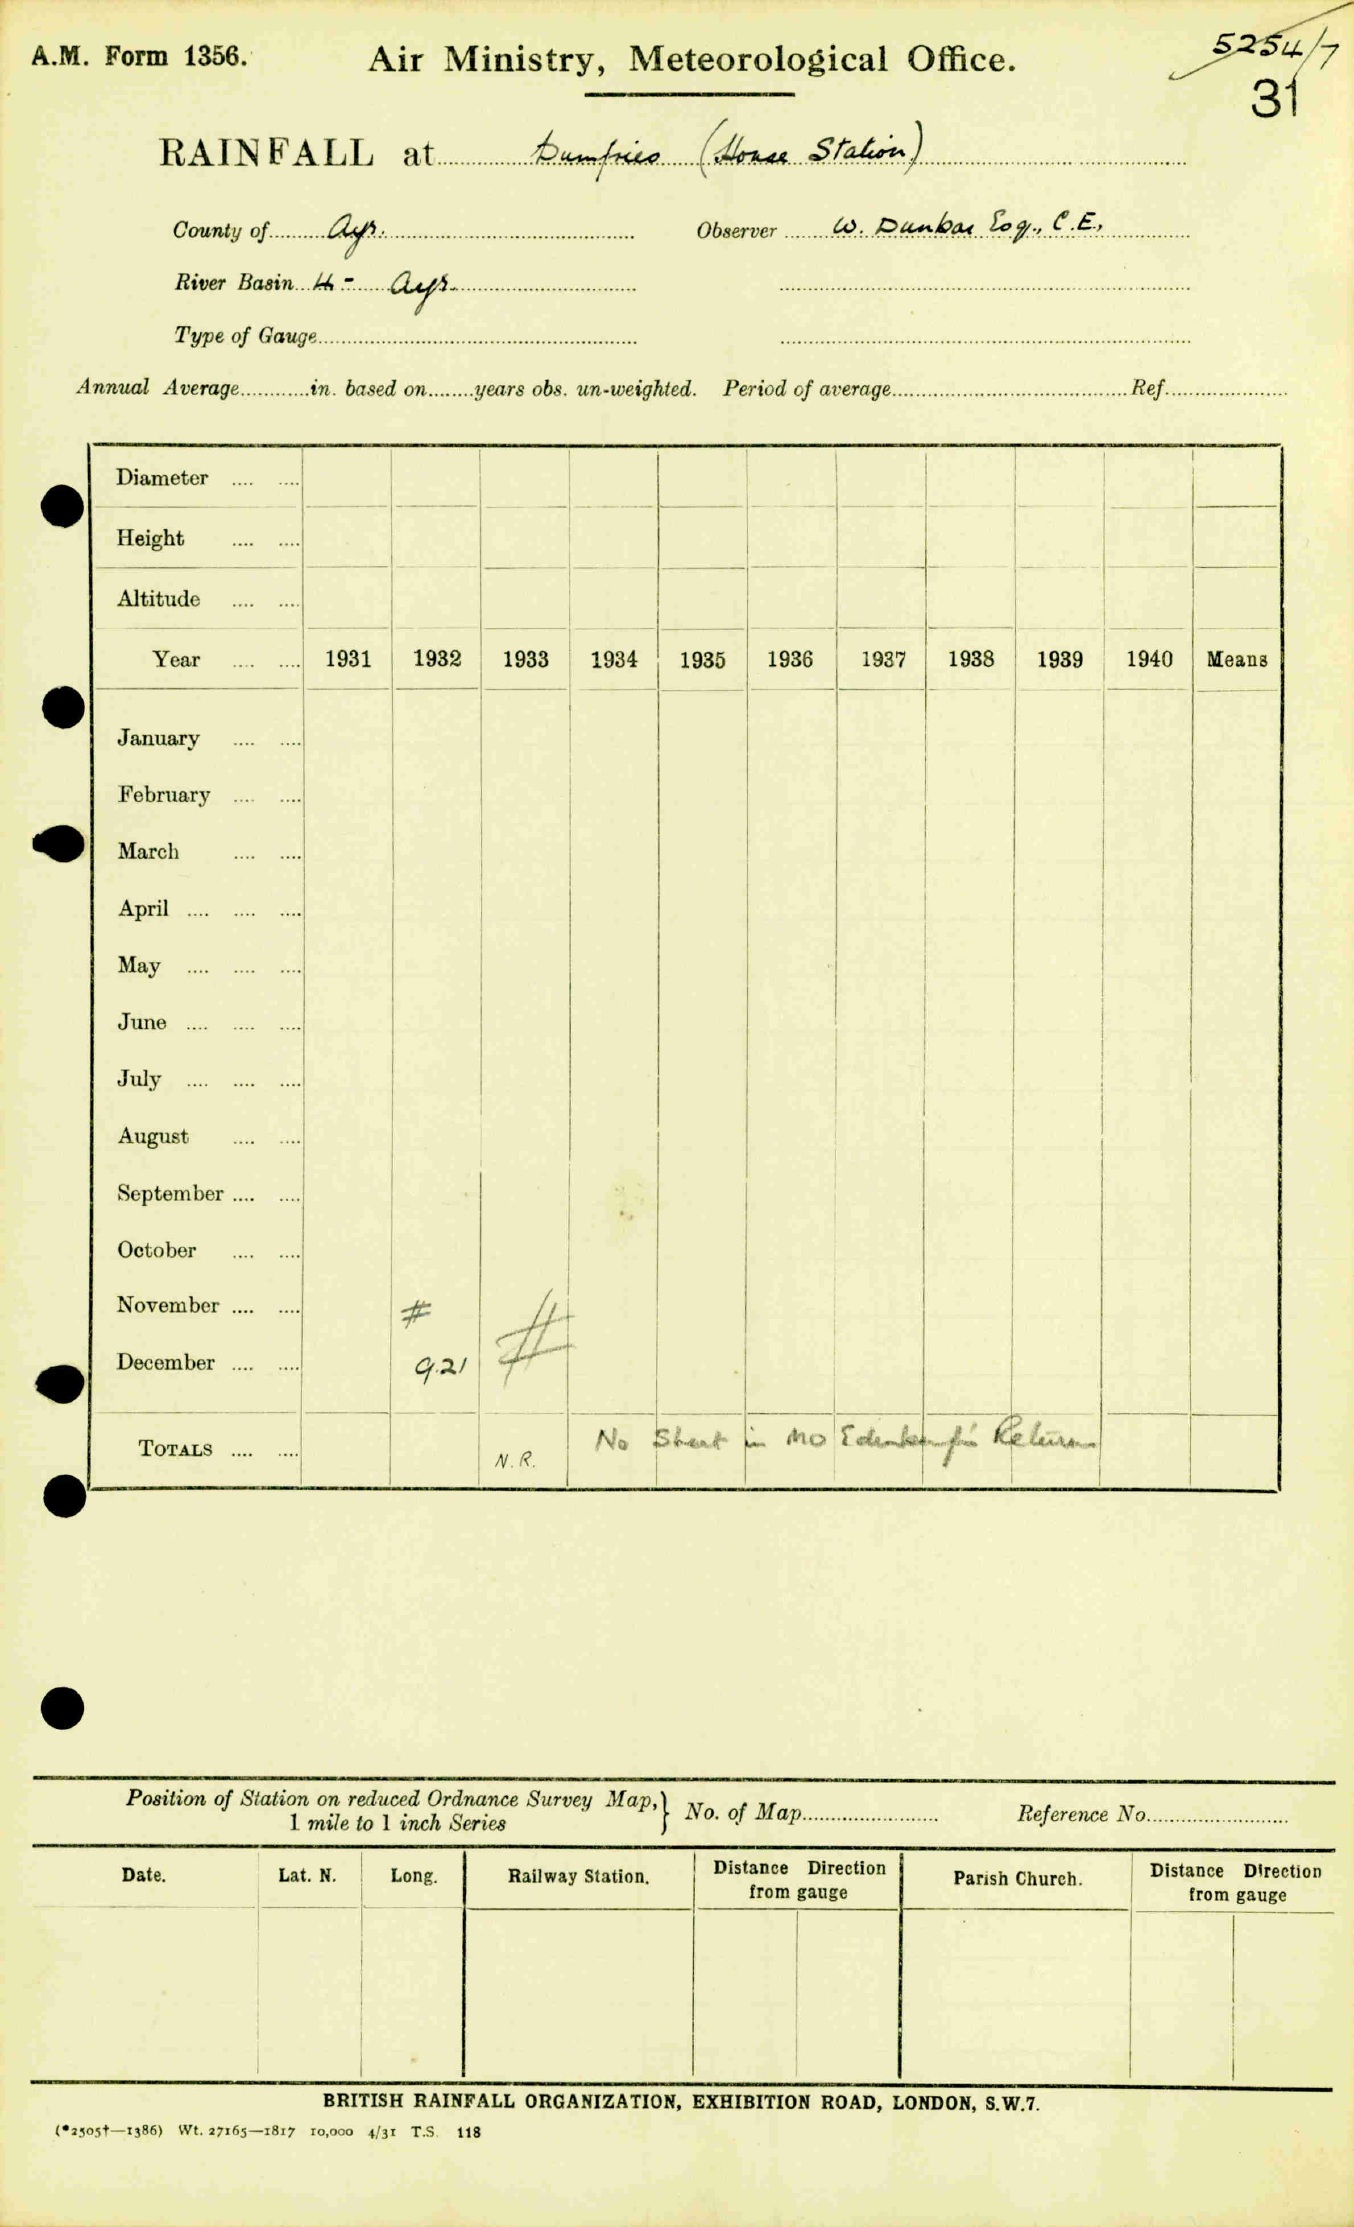 A.M. Form 1356.
Air Ministry, Meteorological Office.
5254/7
31
RAINFALL at Dumfries (House Station)
County of Ayr.
Observer W. Dunbar Esq., C.E.,
River Basin 4 - Ayr.
Type of Gauge
Annual Average in. based on years obs. un-weighted. Period of average Ref.
Diameter
Height
Altitude
Year 1931 1932 1933 1934 1935 1936 1937 1938 1939 1940 Means
January
February
March
April
May
June
July
August
September
October
November #
#
December 9.21
TOTALS N.R. No Sheet in MO Edinburgh Returns
Position of Station on reduced Ordnance Survey Map,} No. of Map Reference No.
1 mile to 1 inch Series
Date. Lat. N. Long. Railway Station. Distance Direction from gauge Parish Church. Distance Direction from gauge
BRITISH RAINFALL ORGANIZATION, EXHIBITION ROAD, LONDON, S.W.7.
(*2505†—1386) Wt. 27165—1817 10,000 4/31 T.S. 118